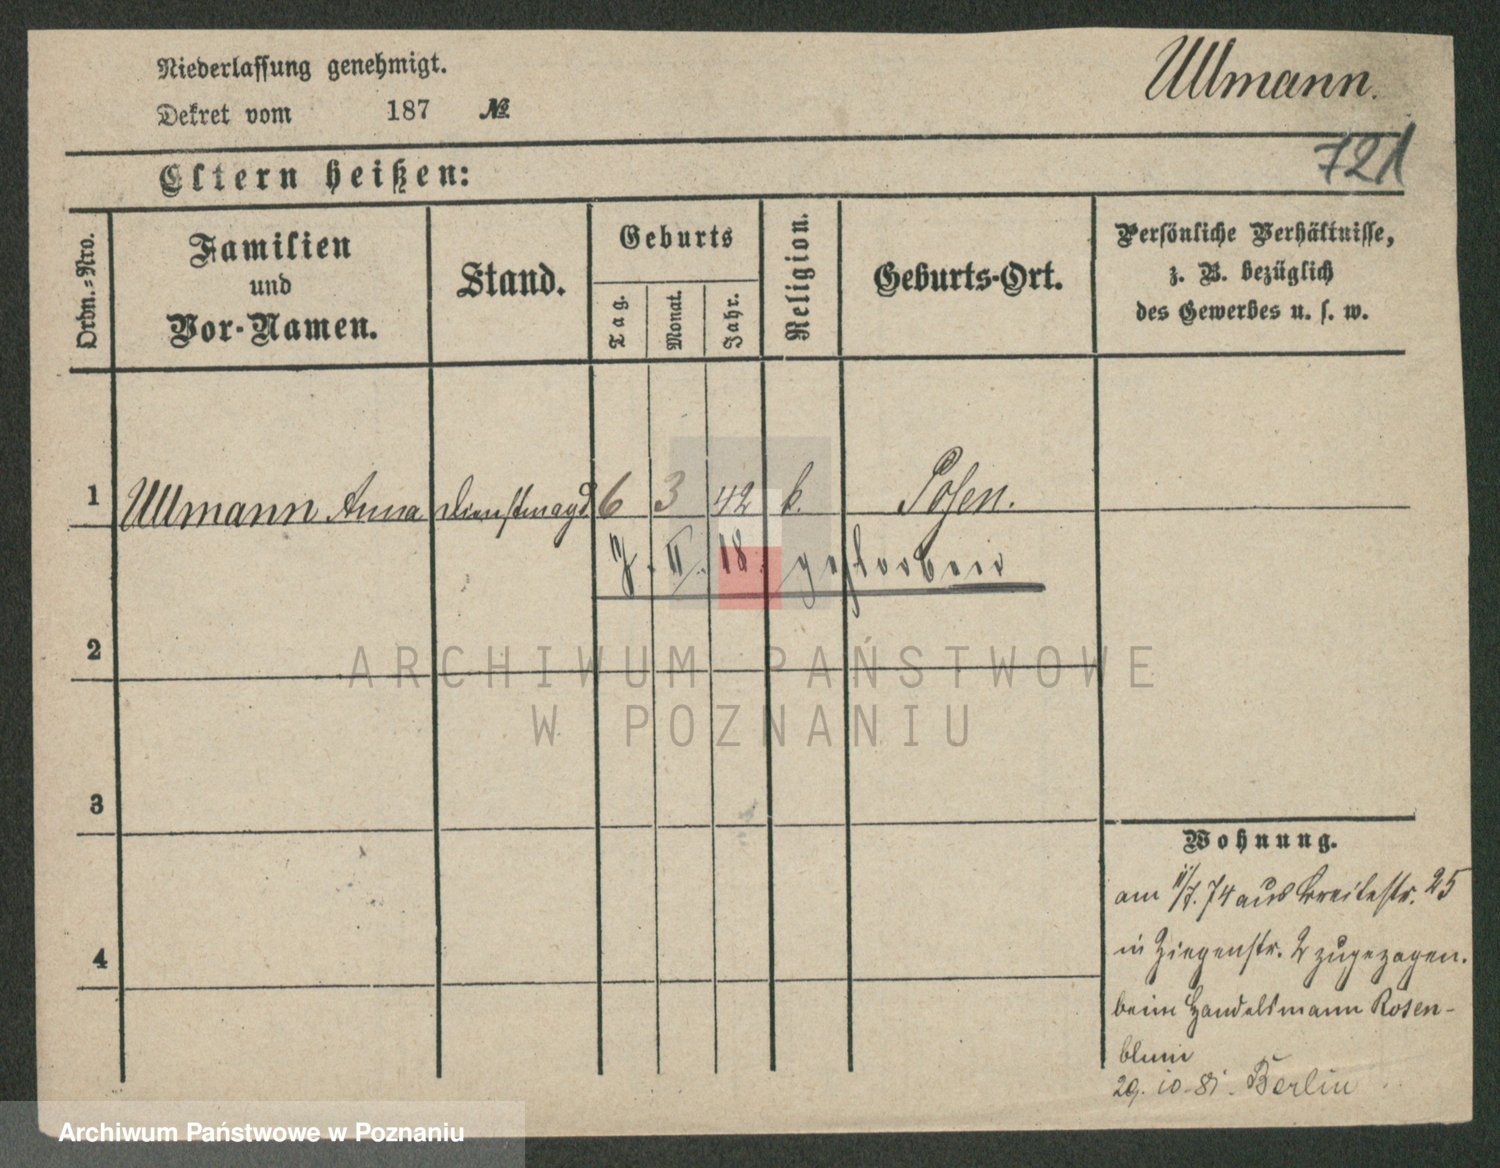 Niederlassung genehmigt.
Ullmann.
Dekret vom 187 №
721
Eltern heißen:
Ordn.-Nro.
Familien
und
Vor-Namen.
Stand.
Geburts
Tag.
Monat.
Jahr.
Religion.
Geburts-Ort.
Persönliche Verhältnisse,
z. B. bezüglich
des Gewerbes u. s. w.
1 Ullmann Anna Dienstmagd 6 3 42 k. Posen.
7. II. 18. gestorben
2
ARCHIWUM PAŃSTWOWE
W POZNANIU
3
Wohnung.
am 11/7. 74 aus Breitestr. 25
in Ziegenstr. 2 zugezogen.
beim Handelsmann Rosen-
blum
4
29. 10. 81. Berlin
Archiwum Państwowe w Poznaniu